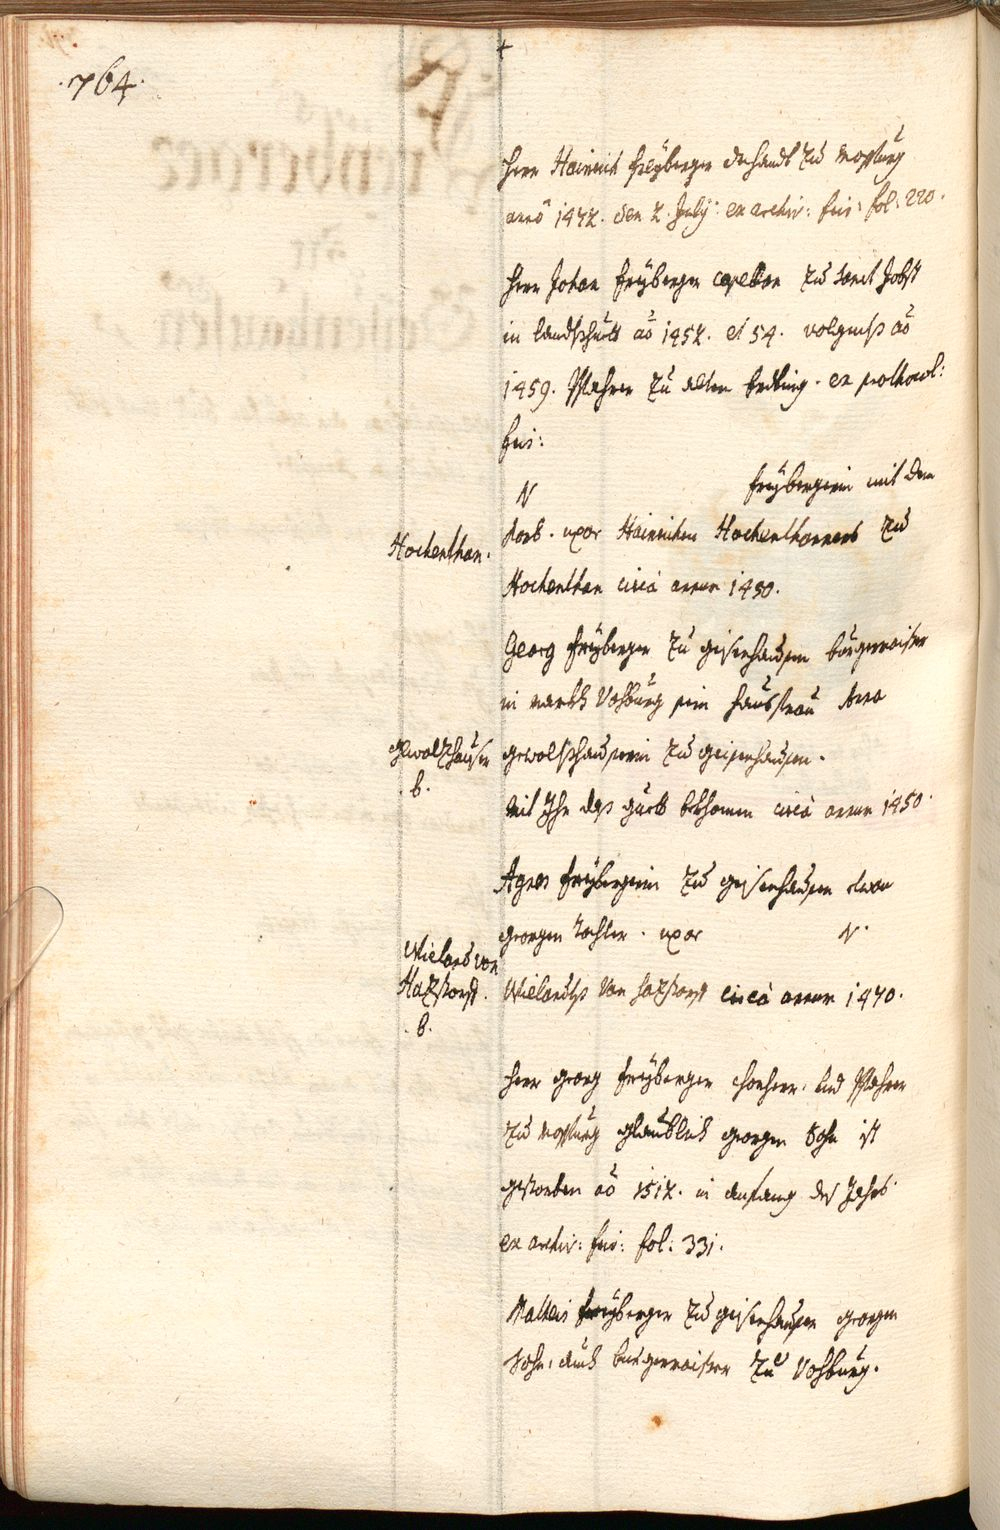 .764.
+
Herr Hainrich Freyberger dechandt zu Mospurg
anno 1472. den 2. July: ex archiv: fris: fol: 220.
Herr Johan Freyberger capellan zu Sanct Jobst
in Landtshuett aõ 1452. et 54. volgents aõ
1459. Pfahrer zu alten Erding. ex prothocol:
fris:
N Freybergerin mit dem
Hochenthan.
korb. uxor Hainrichen Hochenthanners zu
Hochenthan circà annum 1450.
Georg Freyberger zu geisenhausen burgermaister
in markh Vohburg sein hausfrau Anna
Gewolfshauser
B.
gewolfshauserin zu geisenhausen.
mit Ihr das guett bekhomen circà annum 1450.
Agnes Freybergerin zu geisenhausen
georgen tochter. uxor N.
Wieland von
Haxstorff.
B.
Wielandts von haxstorff circà annum 1470.
Herr georg Freyberger chorherr. und Pfahrer
zu Mospurg glaublich georgen Sohn ist
gestorben aõ 1512. in anfang des Jahrs
ex archiv: fris: fol: 331.
Matheis Freyberger zu geisenhausen georgen
Sohn, auch burgermaister zu Vohburg.